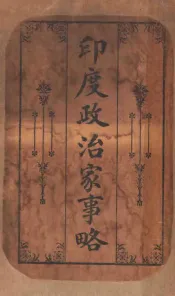 印度政治家事略